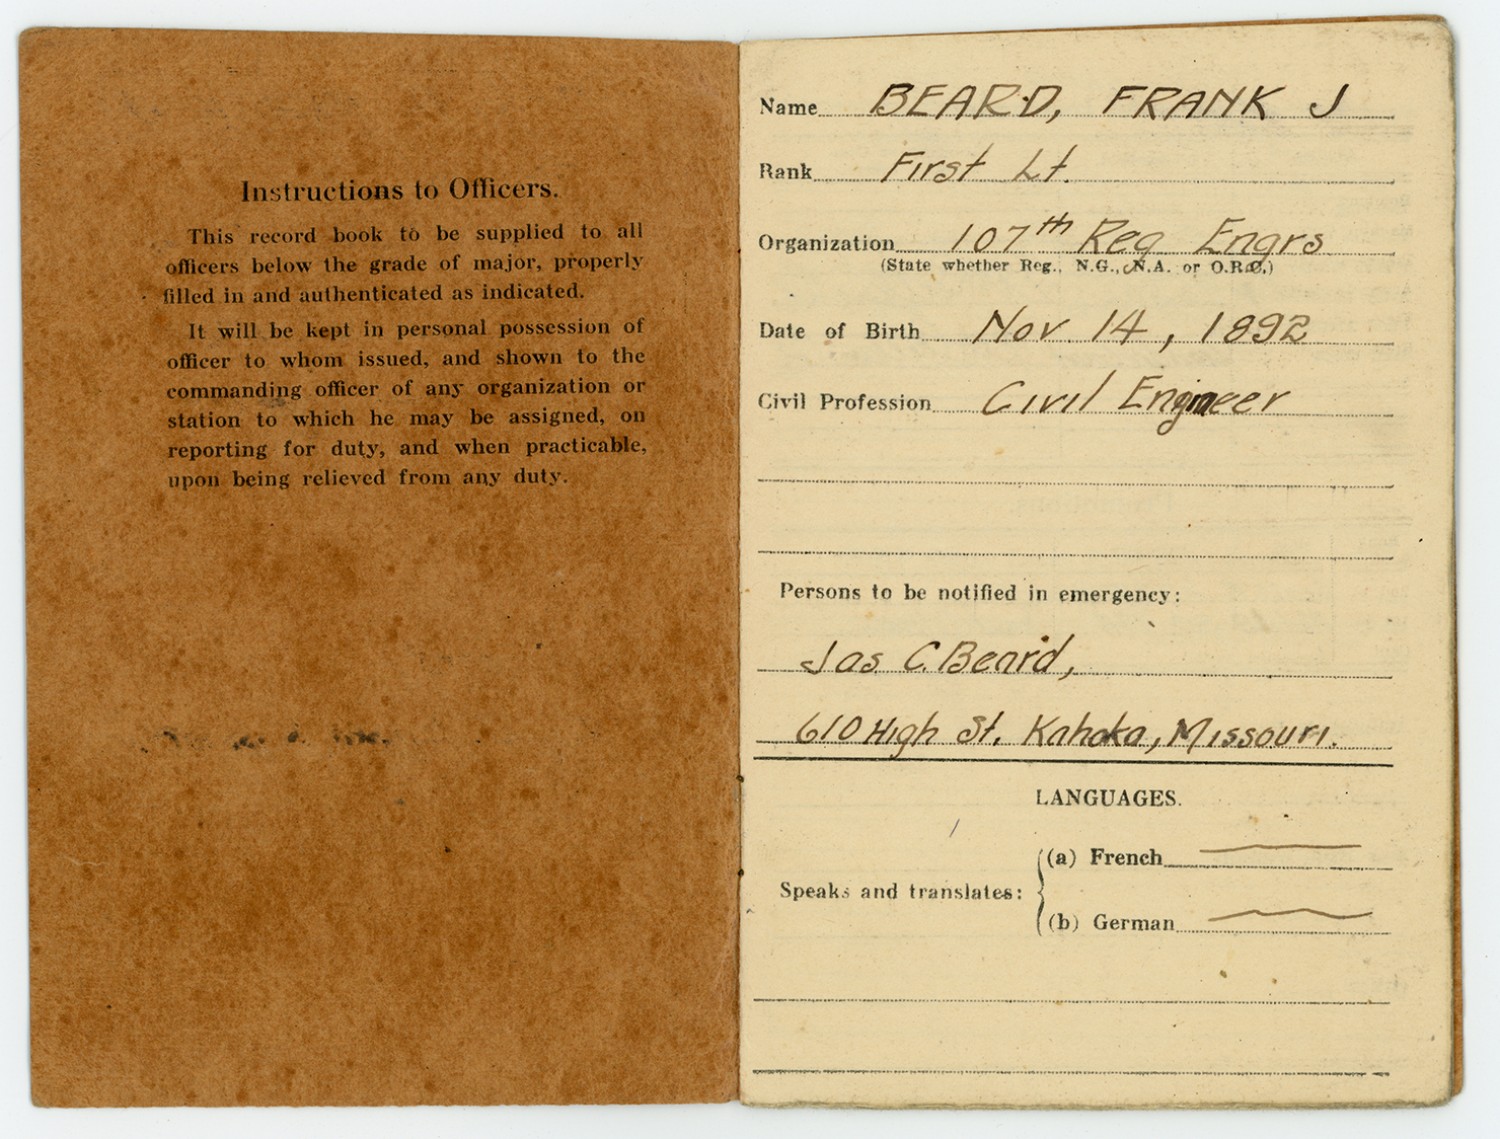 Instructions to Officers.
This record book to be supplied to all
officers below the grade of major, properly
filled in and authenticated as indicated.
It will be kept in personal possession of
officer to whom issued, and shown to the
commanding officer of any organization or
station to which he may be assigned, on
reporting for duty, and when practicable,
upon being relieved from any duty.
Name BEARD, FRANK J
Rank First Lt.
Organization 107th Reg Engrs
(State whether Reg., N.G., N.A. or O.R.C.)
Date of Birth Nov 14, 1892
Civil Profession Civil Engineer
Persons to be notified in emergency:
Jas C. Beard,
610 High St. Kahoka, Missouri.
LANGUAGES.
Speaks and translates:
(a) French
(b) German